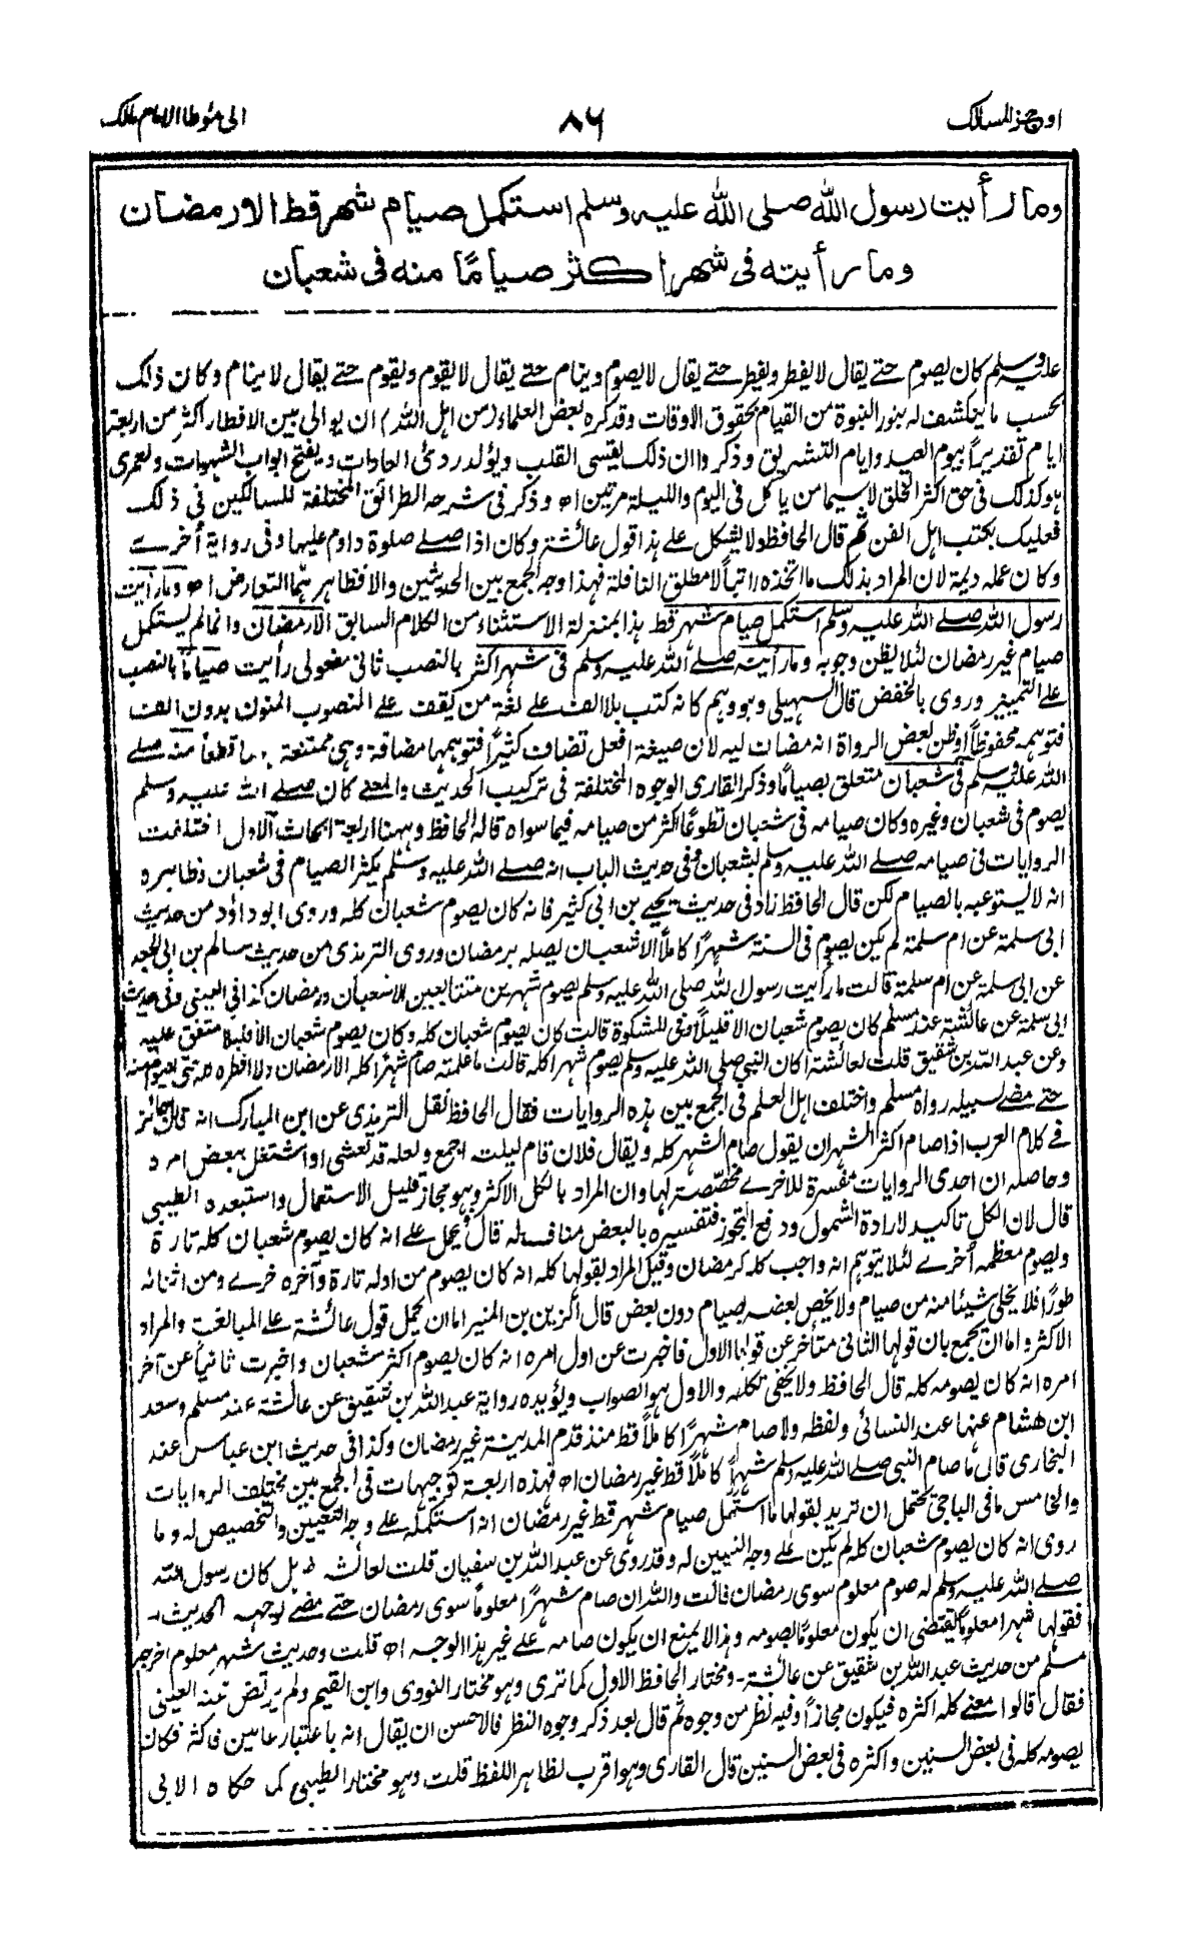 اوجز المسالك
٨٦
الى مؤطا الامام مالك
وما رأيت رسول الله صلى الله عليه وسلم استكمل صيام شهر قط الا رمضان
وما رأيته فى شهر اكثر صياما منه فى شعبان
عليه وسلم كان يصوم حتے يقال لا يفطر ويفطر حتے يقال لا يصوم وينام حتے يقال لا يقوم ويقوم حتے يقال لا ينام وكان ذلك
بحسب ما ينكشف له بنور النبوة من القيام بحقوق الاوقات وقد كره بعض العلماء (من اهل الله) ان يوالى بين الافطار اكثر من اربعة
ايام تقديراً بيوم العيد وايام التشريق وذكروا ان ذلك يقسى القلب ويولد ردئ العادات ويفتح ابواب الشهوات ولعمرى
هو كذلك فى حق اكثر الخلق لا سيما من يأكل فى اليوم والليلة مرتين اھ وذكر فى شرحه الطرائق المختلفة للسالكين فى ذلك
فعليك بكتب اهل الفن ثم قال الحافظ ولا يشكل على هذا قول عائشة وكان اذا صلے صلوة داوم عليها وفى رواية أخرے
وكان عمله ديمة لان المراد بذلك ما اتخذه راتباً لا مطلق النافلة فهذا وجه الجمع بين الحديثين والا فظاهرهما التعارض اھ وما رأيت
رسول الله صلے الله عليه وسلم استكمل صيام شهر قط هذا بمنزلة الاستثناء من الكلام السابق الا رمضان وانما لم يستكمل
صيام غير رمضان لئلا يظن وجوبه وما رأيته صلے الله عليه وسلم فى شهر اكثر بالنصب ثانى مفعولى رأيت صياماً بالنصب
على التمييز وروى بالخفض قال السهيلى وهو وهم كانه كتب بلا الف على لغة من يقف على المنصوب المنون بدون الف
فتوهمه مخفوظاً او ظن بعض الرواة انه مضاف اليه لان صيغة افعل تضاف كثيراً فتوهمها مضافة وهى ممتنعة ههنا قطعاً منه صلے
الله عليه وسلم فى شعبان متعلق بصياماً وذكر القارى الوجوه المختلفة فى تركيب الحديث والمعنے كان صلے الله عليه وسلم
يصوم فى شعبان وغيره وكان صيامه فى شعبان تطوعاً اكثر من صيامه فيما سواه قاله الحافظ وههنا اربعة ابحاث الاول اختلفت
الروايات فى صيامه صلے الله عليه وسلم لشعبان ففى حديث الباب انه صلے الله عليه وسلم يكثر الصيام فى شعبان وظاهره
انه لا يستوعبه بالصيام لكن قال الحافظ زاد فى حديث يحيے بن ابى كثير فانه كان يصوم شعبان كله وروى ابو داؤد من حديث
ابى سلمة عن ام سلمة لم يكن يصوم فى السنة شهراً كاملاً الا شعبان يصله برمضان وروى الترمذى من حديث سالم بن ابى الجعد
عن ابى سلمة عن ام سلمة قالت ما رأيت رسول الله صلى الله عليه وسلم يصوم شهرين متتابعين الا شعبان ورمضان كذا فى العينى وفى حديث
ابى سلمة عن عائشة عند مسلم كان يصوم شعبان الا قليلاً وفى المشكوة قالت كان يصوم شعبان كله وكان يصوم شعبان الا قليلا متفق عليه
وعن عبد الله بن شقيق قلت لعائشة أكان النبى صلى الله عليه وسلم يصوم شهرا كله قالت ما علمته صام شهراً كله الا رمضان ولا افطره كله حتى يصوم منه
حتے مضے لسبيله رواه مسلم واختلف اهل العلم فى الجمع بين هذه الروايات فقال الحافظ نقل الترمذى عن ابن المبارك انه قال جائز
فے كلام العرب اذا صام اكثر الشهر ان يقول صام الشهر كله ويقال فلان قام ليلته اجمع ولعله قد تعشى او اشتغل ببعض امره
وحاصله ان احدى الروايات مفسرة للاخرے مخصصة لها وان المراد بالكل الاكثر وهو مجاز قليل الاستعمال واستبعده الطيبى
قال لان الكل تاكيد لارادة الشمول ودفع التجوز فتفسيره بالبعض مناف له قال فيحمل على انه كان يصوم شعبان كله تارة
ويصوم معظمه أخرے لئلا يتوهم انه واجب كله كرمضان وقيل المراد بقولها كله انه كان يصوم من اوله تارة وآخره اخرے ومن اثنائه
طوراً فلا يخلى شيئا منه من صيام ولا يخص بعضه بصيام دون بعض قال الزين بن المنير اما ان يحمل قول عائشة على المبالغة والمراد
الاكثر واما ان يجمع بان قولها الثانى متأخر عن قولها الاول فاخبرت عن اول امره انه كان يصوم اكثر شعبان واخبرت ثانياً عن آخر
امره انه كان يصومه كله قال الحافظ ولا يخفى تكلفه والاول هو الصواب ويؤيده رواية عبد الله بن شقيق عن عائشة عند مسلم وسعد
ابن هشام عنها عند النسائى ولفظه ولا صام شهراً كاملاً قط منذ قدم المدينة غير رمضان وكذا فى حديث ابن عباس عند
البخارى قال ما صام النبى صلے الله عليه وسلم شهراً كاملاً قط غير رمضان اھ فهذه اربعة توجيهات فى الجمع بين مختلف الروايات
والخامس ما فى الباجى يحتمل ان تريد بقولها ما استكمل صيام شهر قط غير رمضان انه استكمله على وجه التعيين والتخصيص له وما
روى انه كان يصوم شعبان كله لم يكن على وجه التبيين له وقد روى عن عبد الله بن سفيان قلت لعائشة هل كان رسول الله
صلے الله عليه وسلم له صوم معلوم سوى رمضان قالت والله ان صام شهراً معلوماً سوى رمضان حتے مضے لوجهه الحديث۔
فقولها شهرا معلوماً يقتضى ان يكون معلوماً بصومه وهذا لا يمنع ان يكون صامه على غير هذا الوجه اھ قلت وحديث شهر معلوم اخرجه
مسلم من حديث عبد الله بن شقيق عن عائشة۔ ومختار الحافظ الاول كما ترى وهو مختار النووى وابن القيم ولم يرتض عنه العينى
فقال قالوا معنے كله اكثره فيكون مجازاً وفيه نظر من وجوه ثم قال بعد ذكر وجوه النظر فالاحسن ان يقال انه باعتبار عامين فاكثر فكان
يصومه كله فى بعض السنين واكثره فى بعض السنين قال القارى وهو اقرب لظاهر اللفظ قلت وهو مختار الطيبى كما حكاه الابى